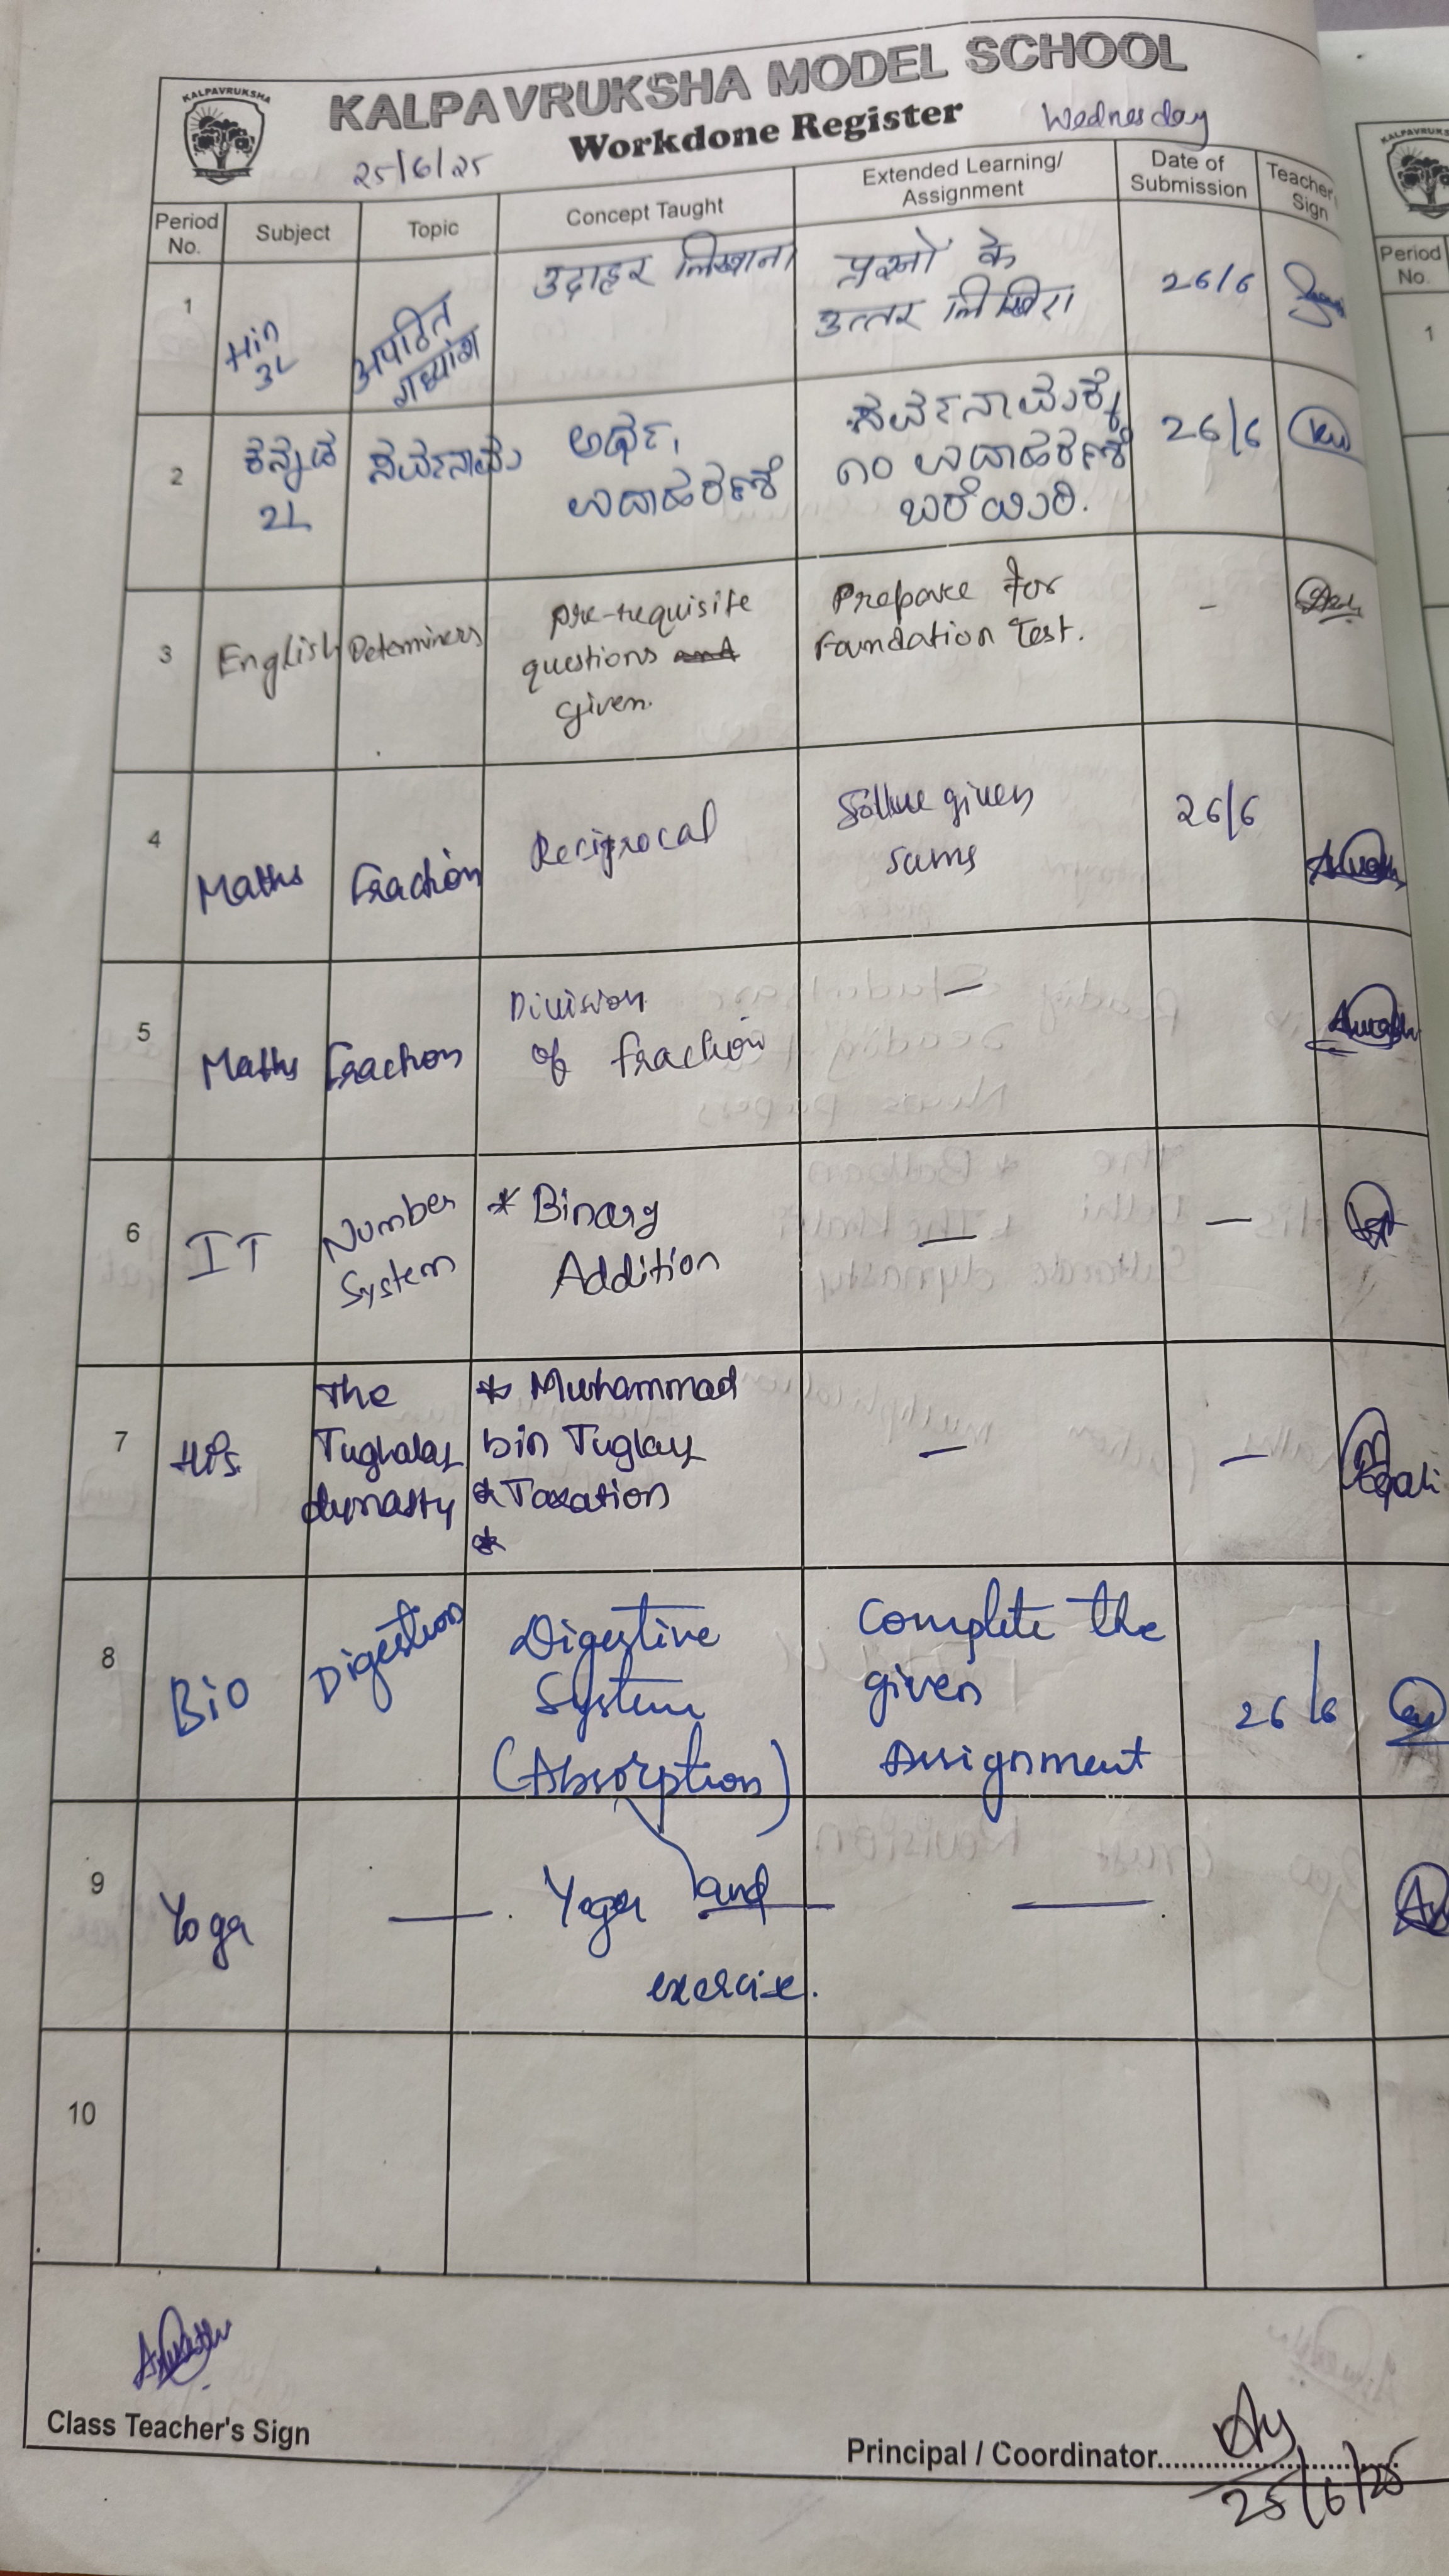 KALPAVRUKSHA
KALPAVRUKSHA MODEL SCHOOL
Workdone Register
25/6/25
Wednesday
Period No.
Subject
Topic
Concept Taught
Extended Learning/ Assignment
Date of Submission
Teacher Sign
1
Hin
3L
अपठित
गद्यांश
उदाहर लिखाना
प्रश्नों के
उत्तर लिखिए।
26/6
2
ಕನ್ನಡ
2L
ಸರ್ವನಾಮ
ಅರ್ಥ,
ಉದಾಹರಣೆ
ಸರ್ವನಾಮಕ್ಕೆ
೧೦ ಉದಾಹರಣೆ
ಬರೆಯಿರಿ.
26/6
3
English
Determiners
Pre-requisite
questions
given.
Prepare for
Foundation Test.
-
4
Maths
Fraction
Reciprocal
Sollve given
sums
26/6
5
Maths
Fraction
Division
of fraction
—
6
IT
Number
System
* Binary
Addition
—
—
7
His
The
Tughalaq
dynasty
* Muhammad
bin Tuglaq
* Taxation
*
—
—
8
Bio
Digestion
Digestive
System
(Absorption)
Complete the
given
Assignment
26/6
9
Yoga
—
Yoga and
exercise.
—
10
Class Teacher's Sign
Principal / Coordinator
25/6/25
KALPAVRUKS
Period
No.
1